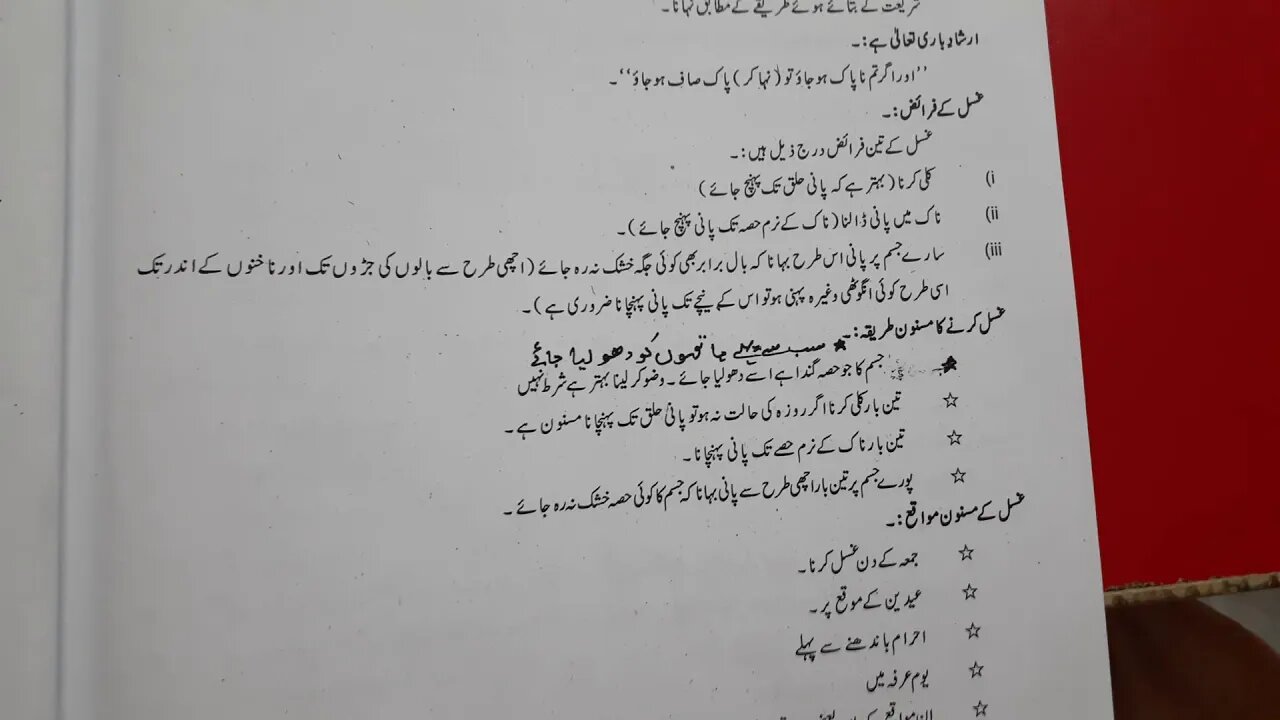 شریعت کے بتائے ہوئے طریقے کے مطابق نہانا۔
ارشاد باری تعالیٰ ہے:۔
’’اور اگر تم ناپاک ہو جاؤ تو (نہا کر) پاک صاف ہو جاؤ‘‘۔
غسل کے فرائض:۔
غسل کے تین فرائض درج ذیل ہیں:۔
i) کلی کرنا (بہتر ہے کہ پانی حلق تک پہنچ جائے)
ii) ناک میں پانی ڈالنا (ناک کے نرم حصہ تک پانی پہنچ جائے)۔
iii) سارے جسم پر پانی اس طرح بہانا کہ بال برابر بھی کوئی جگہ خشک نہ رہ جائے (اچھی طرح سے بالوں کی جڑوں تک اور ناخنوں کے اندر تک
اسی طرح کوئی انگوٹھی وغیرہ پہنی ہو تو اس کے نیچے تک پانی پہنچانا ضروری ہے)۔
غسل کرنے کا مسنون طریقہ:۔
★ سب سے پہلے ہاتھوں کو دھو لیا جائے
★ جسم کا جو حصہ گندا ہے اسے دھولیا جائے۔ وضو کر لینا بہتر ہے شرط نہیں
☆ تین بار کلی کرنا اگر روزہ کی حالت نہ ہو تو پانی حلق تک پہنچانا مسنون ہے۔
☆ تین بار ناک کے نرم حصے تک پانی پہنچانا۔
☆ پورے جسم پر تین بار اچھی طرح سے پانی بہانا کہ جسم کا کوئی حصہ خشک نہ رہ جائے۔
غسل کے مسنون مواقع:۔
☆ جمعہ کے دن غسل کرنا۔
☆ عیدین کے موقع پر۔
☆ احرام باندھنے سے پہلے
☆ یوم عرفہ میں
☆ ان مواقع کے